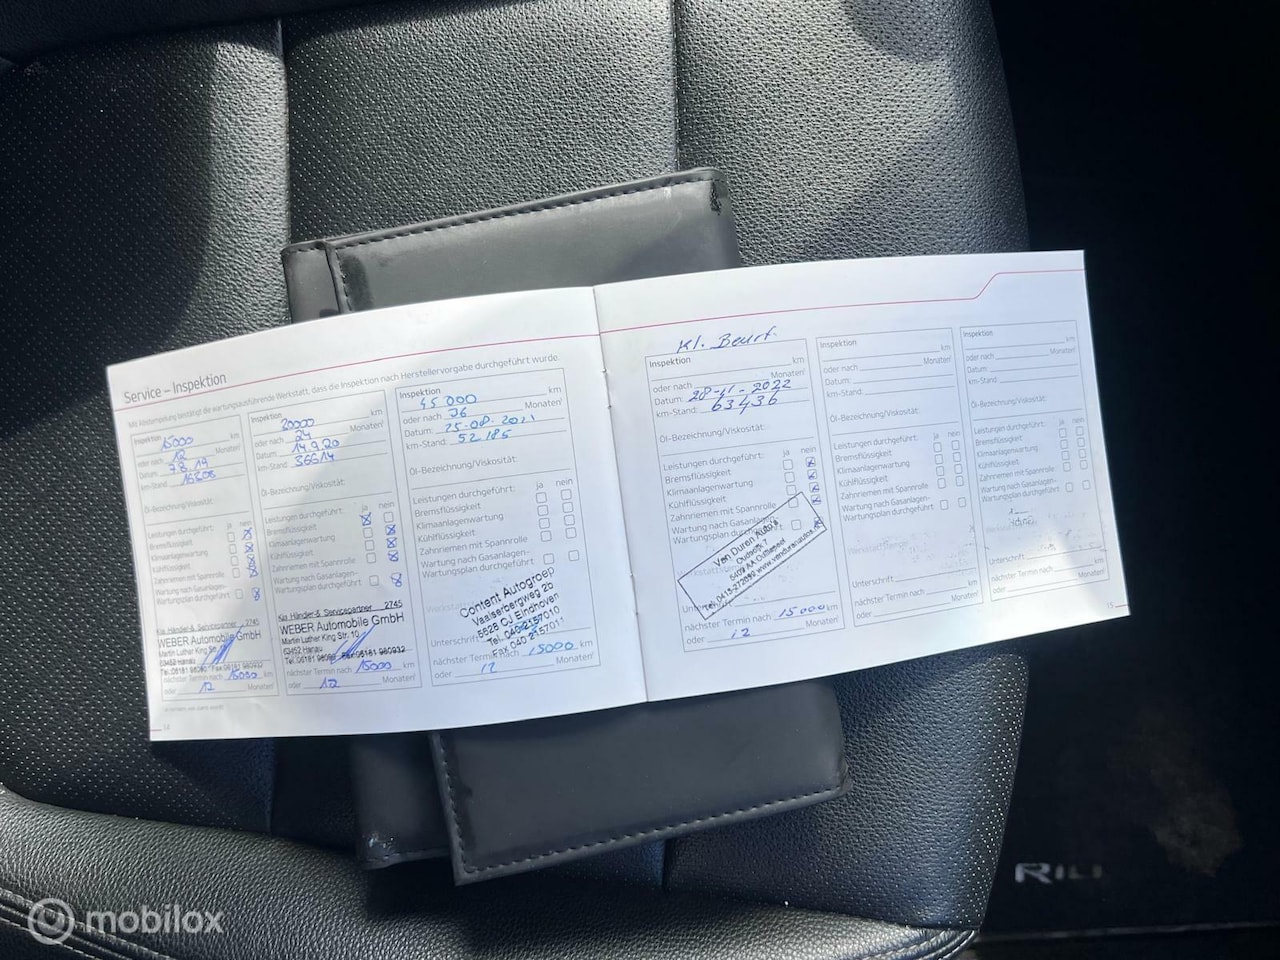 Service – Inspektion
Mit Abstempelung bestätigt die wartungsausführende Werkstatt, dass die Inspektion nach Herstellervorgabe durchgeführt wurde.
Inspektion
15000 km
oder nach 12 Monaten
Datum: 7.8.19
km-Stand:
Öl-Bezeichnung/Viskosität:
Leistungen durchgeführt: ja nein
Bremsflüssigkeit
Klimaanlagenwartung
Kühlflüssigkeit
Zahnriemen mit Spannrolle
Wartung nach Gasanlagen-
Wartungsplan durchgeführt
Kia Händler & Servicepartner 2745
WEBER Automobile GmbH
Martin Luther King Str.
63452 Hanau
nächster Termin nach 15000 km
oder 12 Monaten
14
Inspektion
km
oder nach 24 Monaten
Datum: 14.9.20
km-Stand: 36614
Öl-Bezeichnung/Viskosität:
Leistungen durchgeführt: ja nein
Bremsflüssigkeit
Klimaanlagenwartung
Kühlflüssigkeit
Zahnriemen mit Spannrolle
Wartung nach Gasanlagen-
Wartungsplan durchgeführt
Kia Händler & Servicepartner 2745
WEBER Automobile GmbH
Martin Luther King Str. 10
63452 Hanau
nächster Termin nach 15000 km
oder 12 Monaten
Inspektion
45000 km
oder nach 36 Monaten
Datum: 25-08-2021
km-Stand: 52185
Öl-Bezeichnung/Viskosität:
Leistungen durchgeführt: ja nein
Bremsflüssigkeit
Klimaanlagenwartung
Kühlflüssigkeit
Zahnriemen mit Spannrolle
Wartung nach Gasanlagen-
Wartungsplan durchgeführt
Content Autogroep
Vaalserbergweg 2b
5628 CJ Eindhoven
Tel. 040-2157010
Fax 040 2157011
Unterschrift:
nächster Termin nach 15000 km
oder 12 Monaten
Kl. Beurt.
Inspektion
km
oder nach Monaten
Datum: 28-11-2022
km-Stand: 63436
Öl-Bezeichnung/Viskosität:
Leistungen durchgeführt: ja nein
Bremsflüssigkeit
Klimaanlagenwartung
Kühlflüssigkeit
Zahnriemen mit Spannrolle
Wartung nach Gasanlagen-
Wartungsplan durchgeführt
Van Duren Auto's
nächster Termin nach 15000 km
oder 12 Monaten
Inspektion
km
oder nach Monaten
Datum:
km-Stand:
Öl-Bezeichnung/Viskosität:
Leistungen durchgeführt: ja nein
Bremsflüssigkeit
Klimaanlagenwartung
Kühlflüssigkeit
Zahnriemen mit Spannrolle
Wartung nach Gasanlagen-
Wartungsplan durchgeführt
Unterschrift:
nächster Termin nach km
oder Monaten
Inspektion
km
oder nach Monaten
Datum:
km-Stand:
Öl-Bezeichnung/Viskosität:
Leistungen durchgeführt: ja nein
Bremsflüssigkeit
Klimaanlagenwartung
Kühlflüssigkeit
Zahnriemen mit Spannrolle
Wartung nach Gasanlagen-
Wartungsplan durchgeführt
Unterschrift:
nächster Termin nach km
oder Monaten
15
mobilox